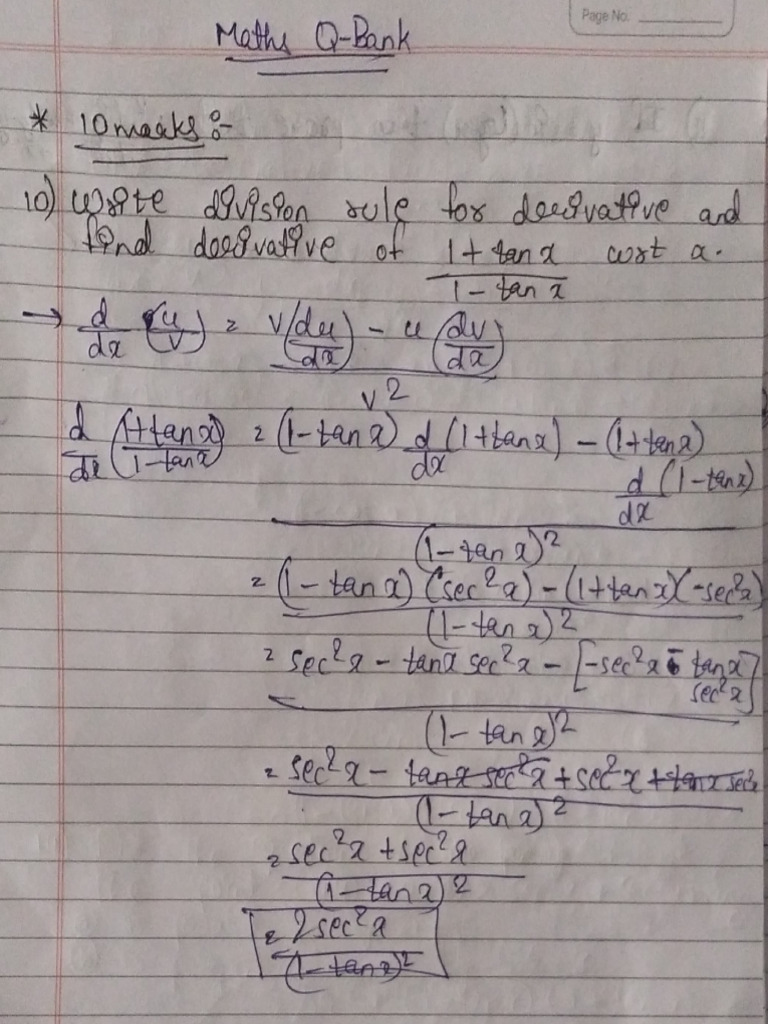 Page No.
Maths Q-Bank
* 10 marks :-
10) Write division rule for derivative and
find derivative of 1 + tan x / 1 - tan x wrt x.
→ d/dx (u/v) = v(du/dx) - u(dv/dx) / v²
d/dx (1+tan x / 1-tan x) = (1-tan x) d/dx (1+tan x) - (1+tan x)
d/dx (1-tan x)
(1-tan x)²
= (1-tan x) (sec²x) - (1+tan x)(-sec²x)
(1-tan x)²
= sec²x - tan x sec²x - [-sec²x - tan x
sec²x]
(1-tan x)²
= sec²x - tan x sec²x + sec²x + tan x sec²x
(1-tan x)²
= sec²x + sec²x
(1-tan x)²
= 2sec²x
(1-tan x)²